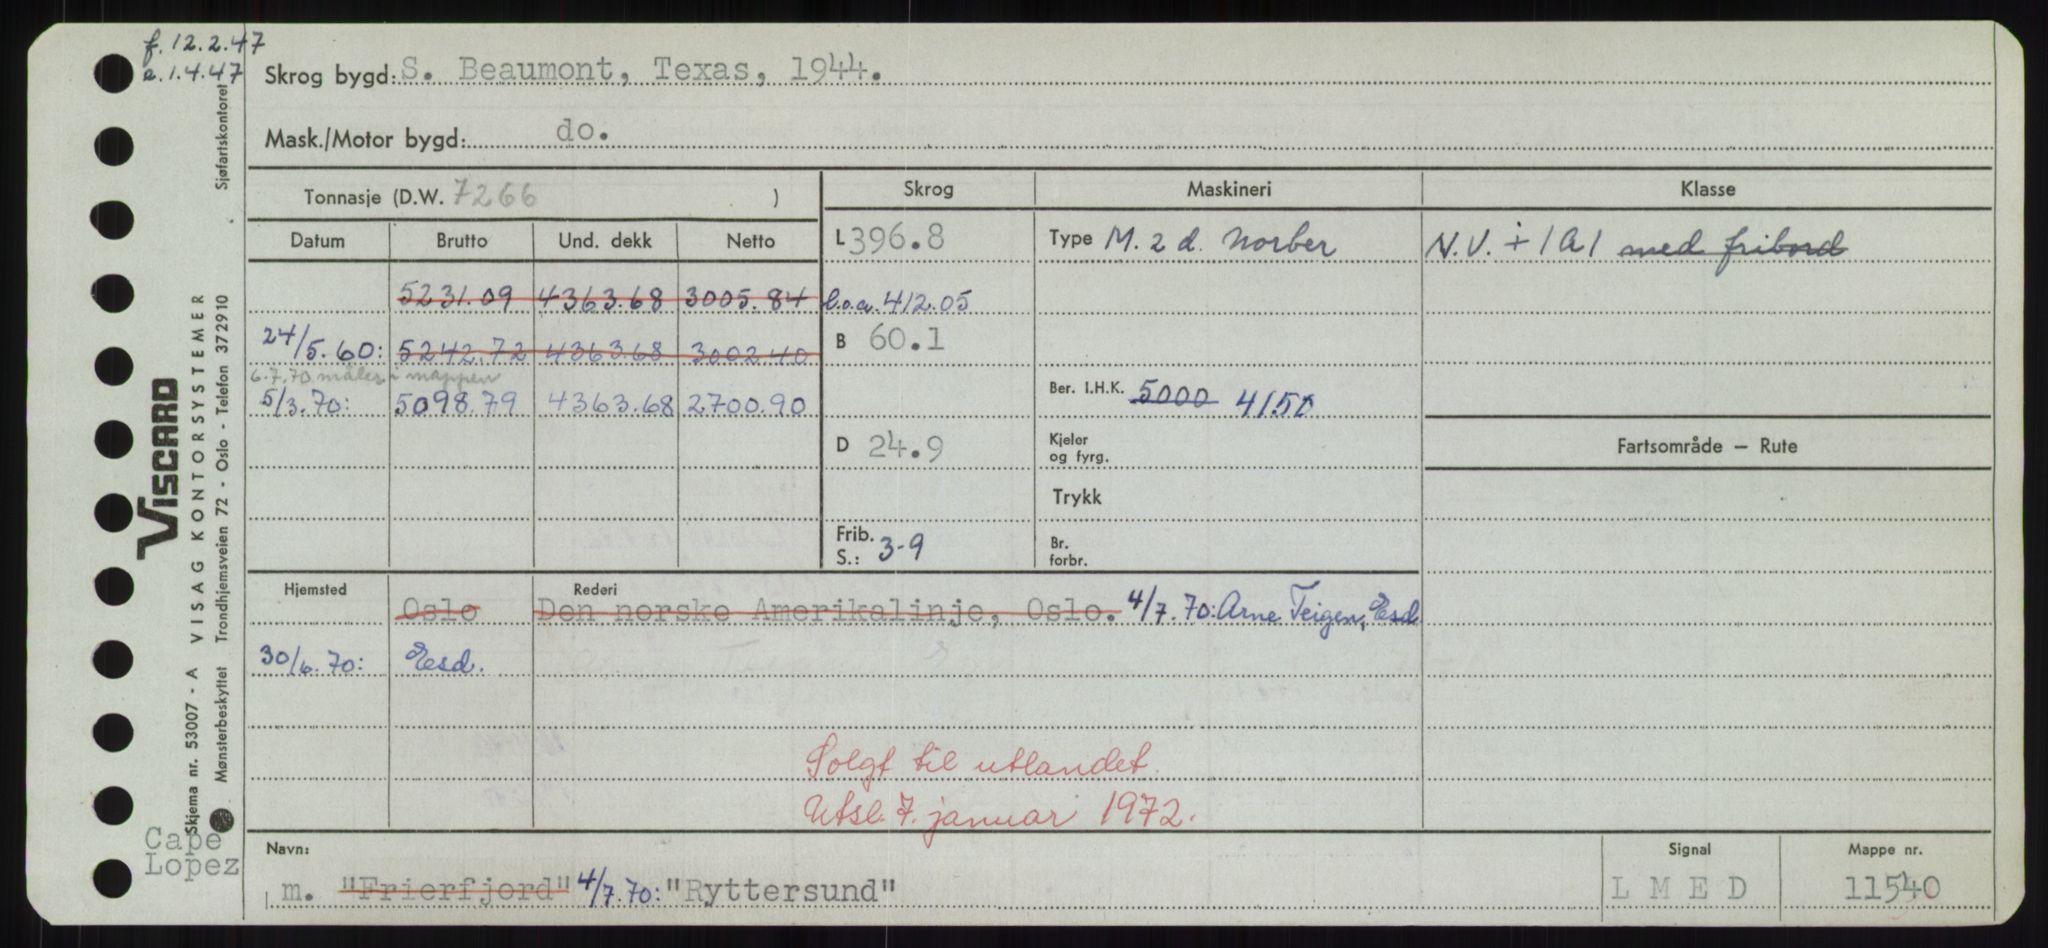 f. 12.2.47
a. 1.4.47
Skrog bygd: S. Beaumont, Texas, 1944.
Mask./Motor bygd: do.
Tonnasje (D.W. 7266 )
Skrog Maskineri Klasse
Datum Brutto Und. dekk Netto
L 396.8 Type M. 2 d. Norber N.V. + 1A1 med fribord
5231.09 4363.68 3005.84 l.o.a. 412.05
24/5.60: 5242.72 4363.68 3002.40 B 60.1
6.7.70 måler i mappen
5/3.70: 5098.79 4363.68 2700.90 Ber. I.H.K. 5000 4150
D 24.9 Kjeler og fyrg.
Fartsområde — Rute
Trykk
Frib. S.: 3-9 Br. forbr.
Hjemsted Rederi
Oslo Den norske Amerikalinje, Oslo. 4/7.70: Arne Teigen, Esd
30/6.70: Esd.
Solgt til utlandet.
Utsl. 7. januar 1972.
Navn: Signal Mappe nr.
m. "Frierfjord" 4/7.70: "Ryttersund" L M E D 11540
Cape
Lopez
VISCARD
Skjema nr. 53007 - A VISAG KONTORSYSTEMER
Mønsterbeskyttet Trondhjemsveien 72 - Oslo - Telefon 372910
Sjøfartskontoret